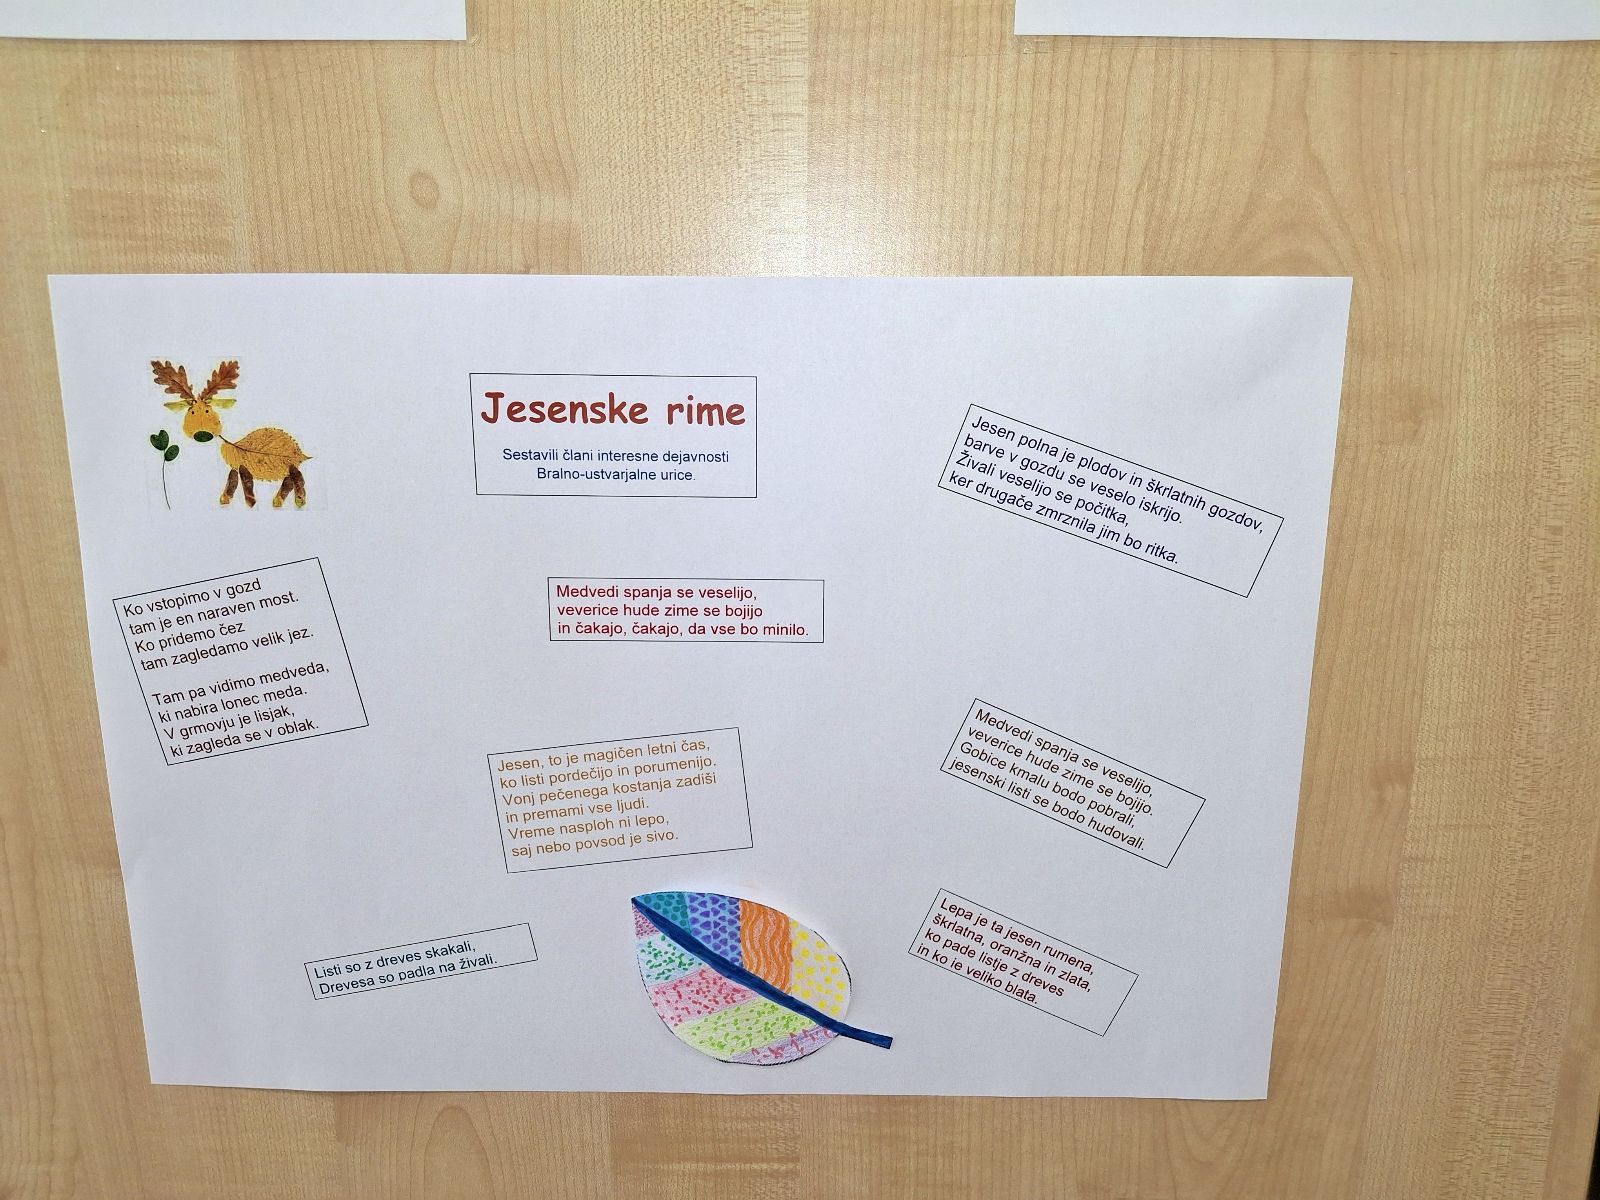 Jesenske rime
Sestavili člani interesne dejavnosti
Bralno-ustvarjalne urice.
Jesen polna je plodov in škrlatnih gozdov,
barve v gozdu se veselo iskrijo.
Živali veselijo se počitka,
ker drugače zmrznila jim bo ritka.
Ko vstopimo v gozd
tam je en naraven most.
Ko pridemo čez
tam zagledamo velik jez.
Tam pa vidimo medveda,
ki nabira lonec meda.
V grmovju je lisjak,
ki zagleda se v oblak.
Medvedi spanja se veselijo,
veverice hude zime se bojijo
in čakajo, čakajo, da vse bo minilo.
Jesen, to je magičen letni čas,
ko listi pordečijo in porumenijo.
Vonj pečenega kostanja zadiši
in premami vse ljudi.
Vreme nasploh ni lepo,
saj nebo povsod je sivo.
Medvedi spanja se veselijo,
veverice hude zime se bojijo.
Gobice kmalu bodo pobrali,
jesenski listi se bodo hudovali.
Listi so z dreves skakali,
Drevesa so padla na živali.
Lepa je ta jesen rumena,
škrlatna, oranžna in zlata,
ko pade listje z dreves
in ko je veliko blata.